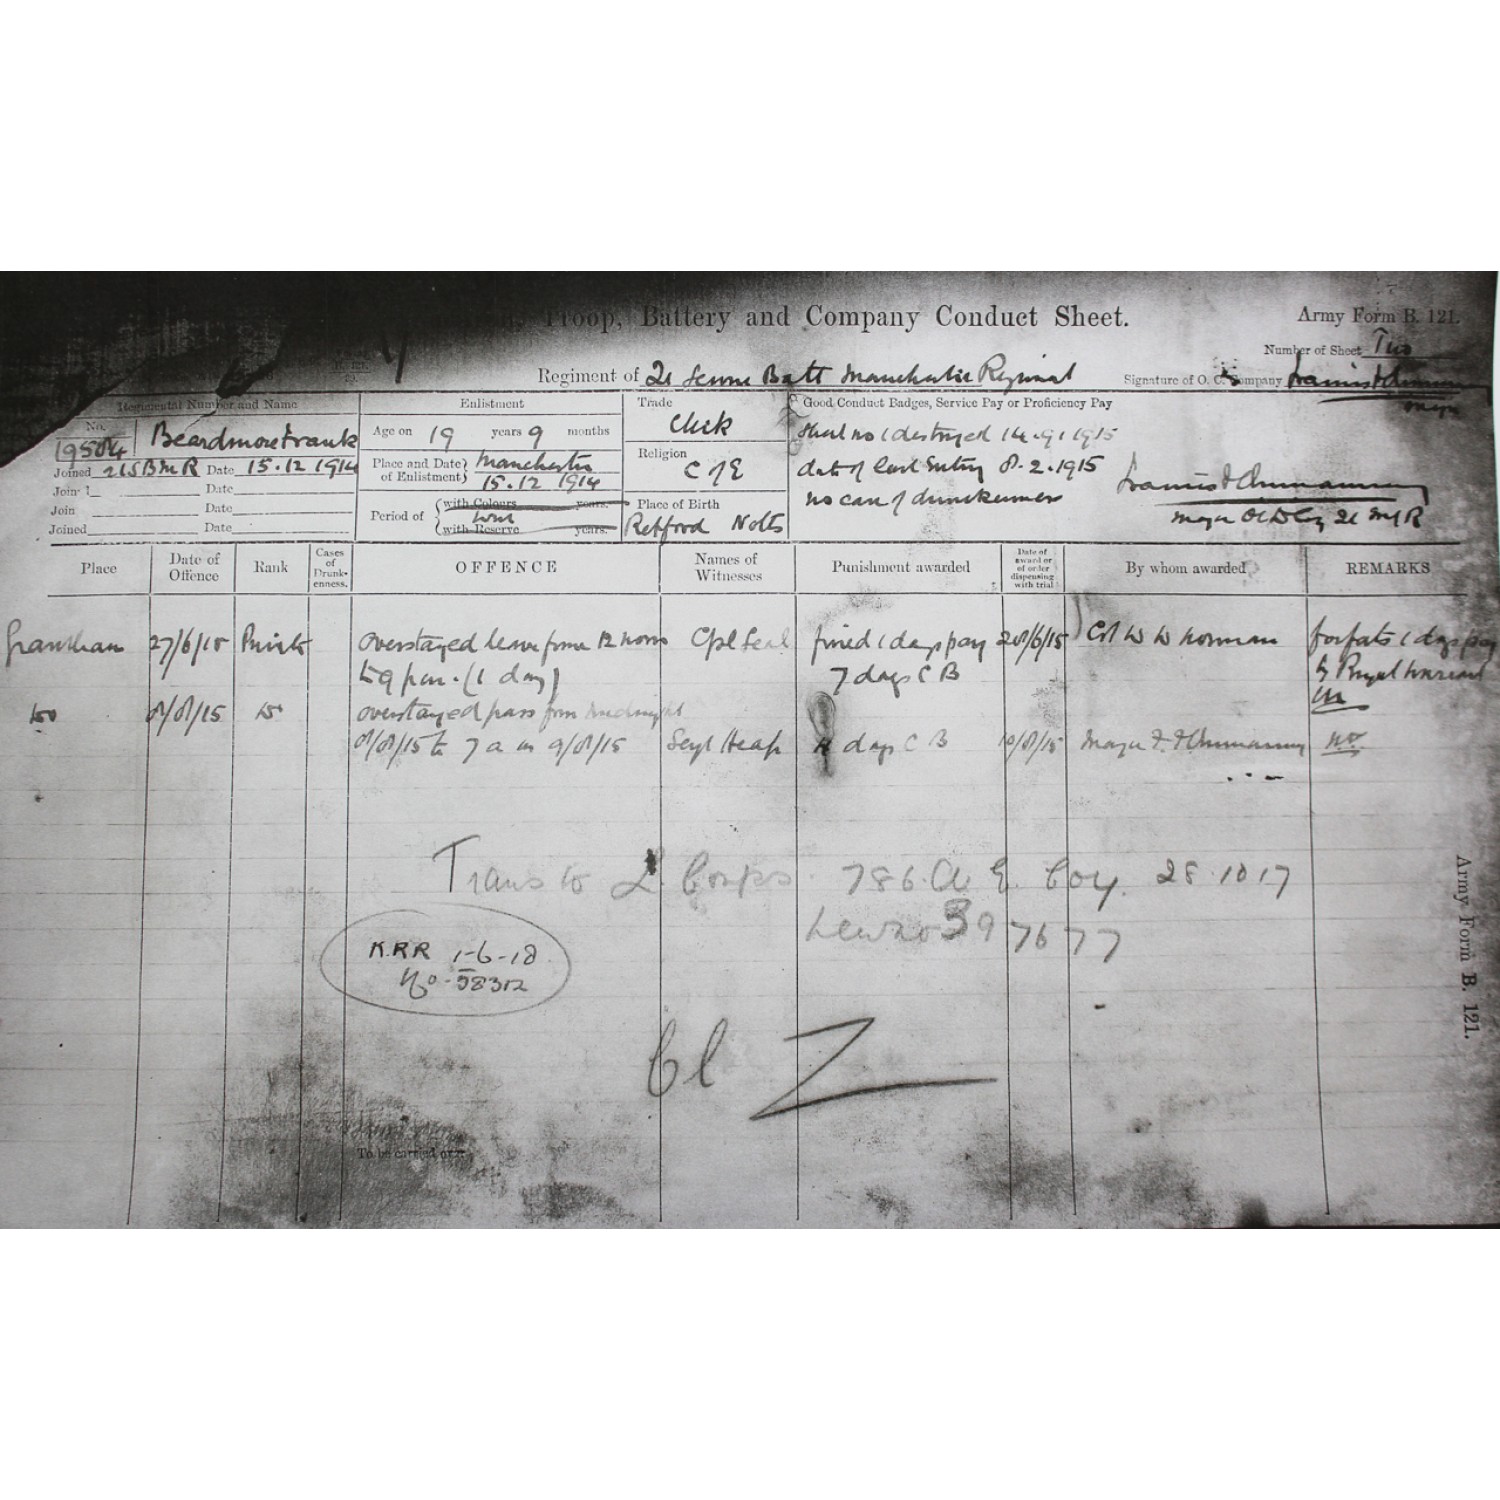 Troop, Battery and Company Conduct Sheet.
Army Form B. 121.
Number of Sheet Two
Regiment of 21 Serv Batt Manchester Regiment
Signature of O. C. Company
Regimental Number and Name
No. 19504 Beardmore Frank
Joined 21 S B M R Date 15.12 1914
Join Date
Join Date
Joined Date
Enlistment
Age on 19 years 9 months
Place and Date of Enlistment Manchester 15.12 1914
Period of with Colours years.
with Reserve years.
Trade
Clerk
Religion
C of E
Place of Birth
Retford Notts
Good Conduct Badges, Service Pay or Proficiency Pay
Sheet no 1 destroyed 14.9.1915
date of last Entry 8.2.1915
no case of drunkenness
Major OC D Coy 21 M R
Place
Date of Offence
Rank
Cases of Drunkenness.
OFFENCE
Names of Witnesses
Punishment awarded
Date of award or of order dispensing with trial
By whom awarded
REMARKS
Grantham 27/6/15 Private overstayed leave from 12 noon Cpl Seal fined 1 days pay 28/6/15 Col W W Norman forfeits 1 days pay
to 9 pm. (1 day) 7 days C B by Royal Warrant
do 8/8/15 do overstayed pass from midnight
8/8/15 to 7 a m 9/8/15 Sergt Heap 4 days C B 10/8/15 Major
Trans to L. Corps. 786. A. E. Coy. 28.10 17
New no 397677
K.R.R 1-6-18
No. 58312
Cl Z
To be carried over
Army Form B. 121.